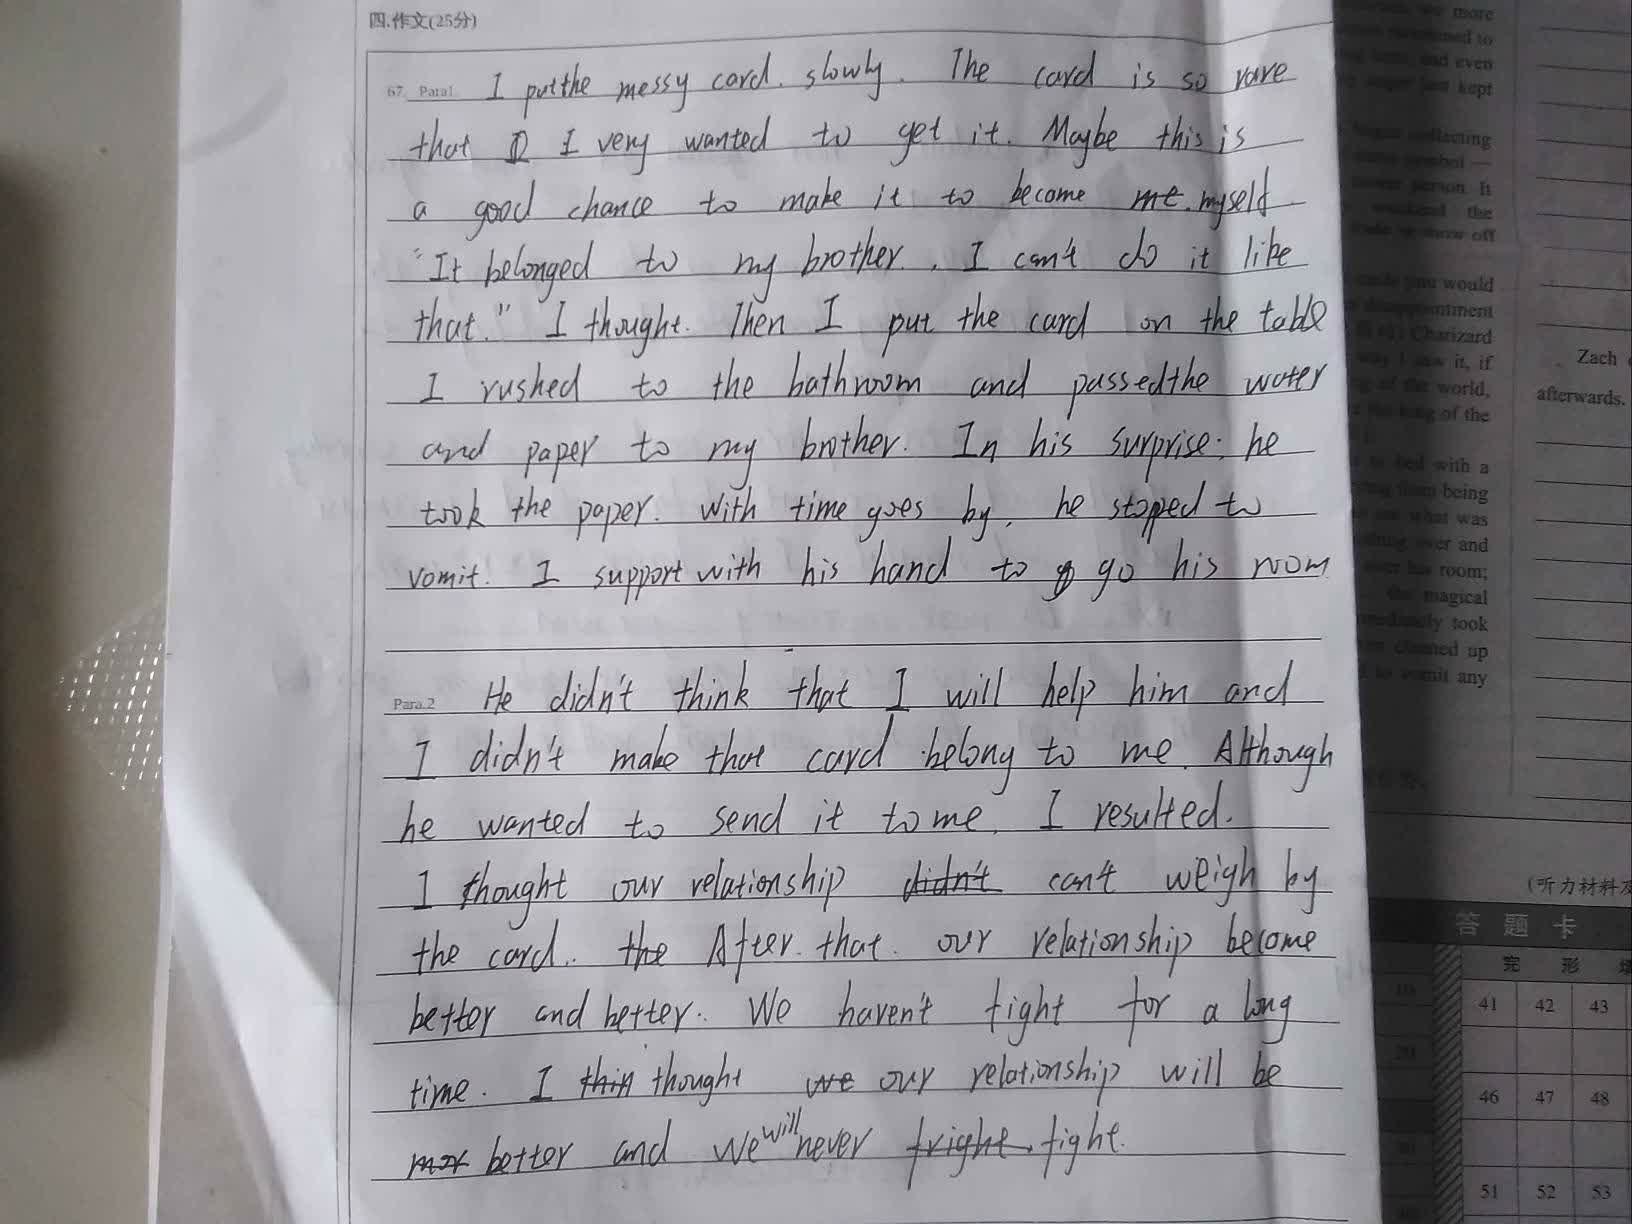 四.作文(25分)
67. Para1 I put the messy card. slowly. The card is so rare
that I very wanted to get it. Maybe this is
a good chance to make it to become me myself
"It belonged to my brother. I can't do it like
that." I thought. Then I put the card on the table
I rushed to the bathroom and passed the water
and paper to my brother. In his surprise, he
took the paper. With time goes by, he stoped to
vomit. I support with his hand to go his room
Para.2 He didn't think that I will help him and
I didn't make that card belong to me. Although
he wanted to send it to me, I resulted.
I thought our relationship didn't can't weigh by
the card.. the After that. our relationship become
better and better. We haven't fight for a long
time. I thin thought we our relationship will be
better and we will never fright. fight.
more
and even
just kept
collecting
symbol —
person. It
weekend the
show off
you would
disappointment
Charizard
way I saw it, if
of the world,
king of the
to bed with a
from being
what was
over and
his room;
the magical
immediately took
cleaned up
to vomit any
Zach
afterwards.
(听力材料
答 题 卡
完 形
41 42 43
46 47 48
51 52 53